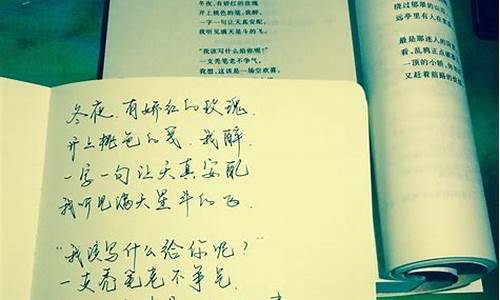 冬夜,有娇红的玫瑰
开上桃色的笺,我醉,
一字一句让天真安配
我听见满天星斗的飞。
“我该写什么给你呢?”
一支秃笔老不争气,
冬夜,有娇红的玫瑰
开上桃色的笺,我醉,
一字一句让天真安配,
我听见满天星斗的飞。
“我该写什么给你呢?”
一支秃笔老不争气,
我想,这该是一场空欢喜,
绕过郁翠的山
远亭里有人在
最是那迷人的
看,乱鸦正点
一顶的小轿,
又赶着前路的